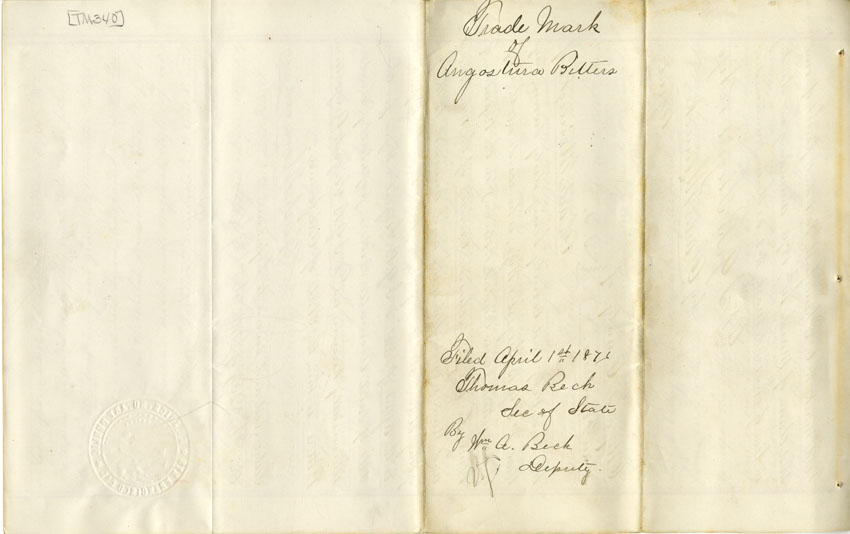 [TM340]
Trade Mark
of
Angostura Bitters
Filed April 1st 1876
Thomas Beck
Sec of State
By Wm A. Beck
Deputy.